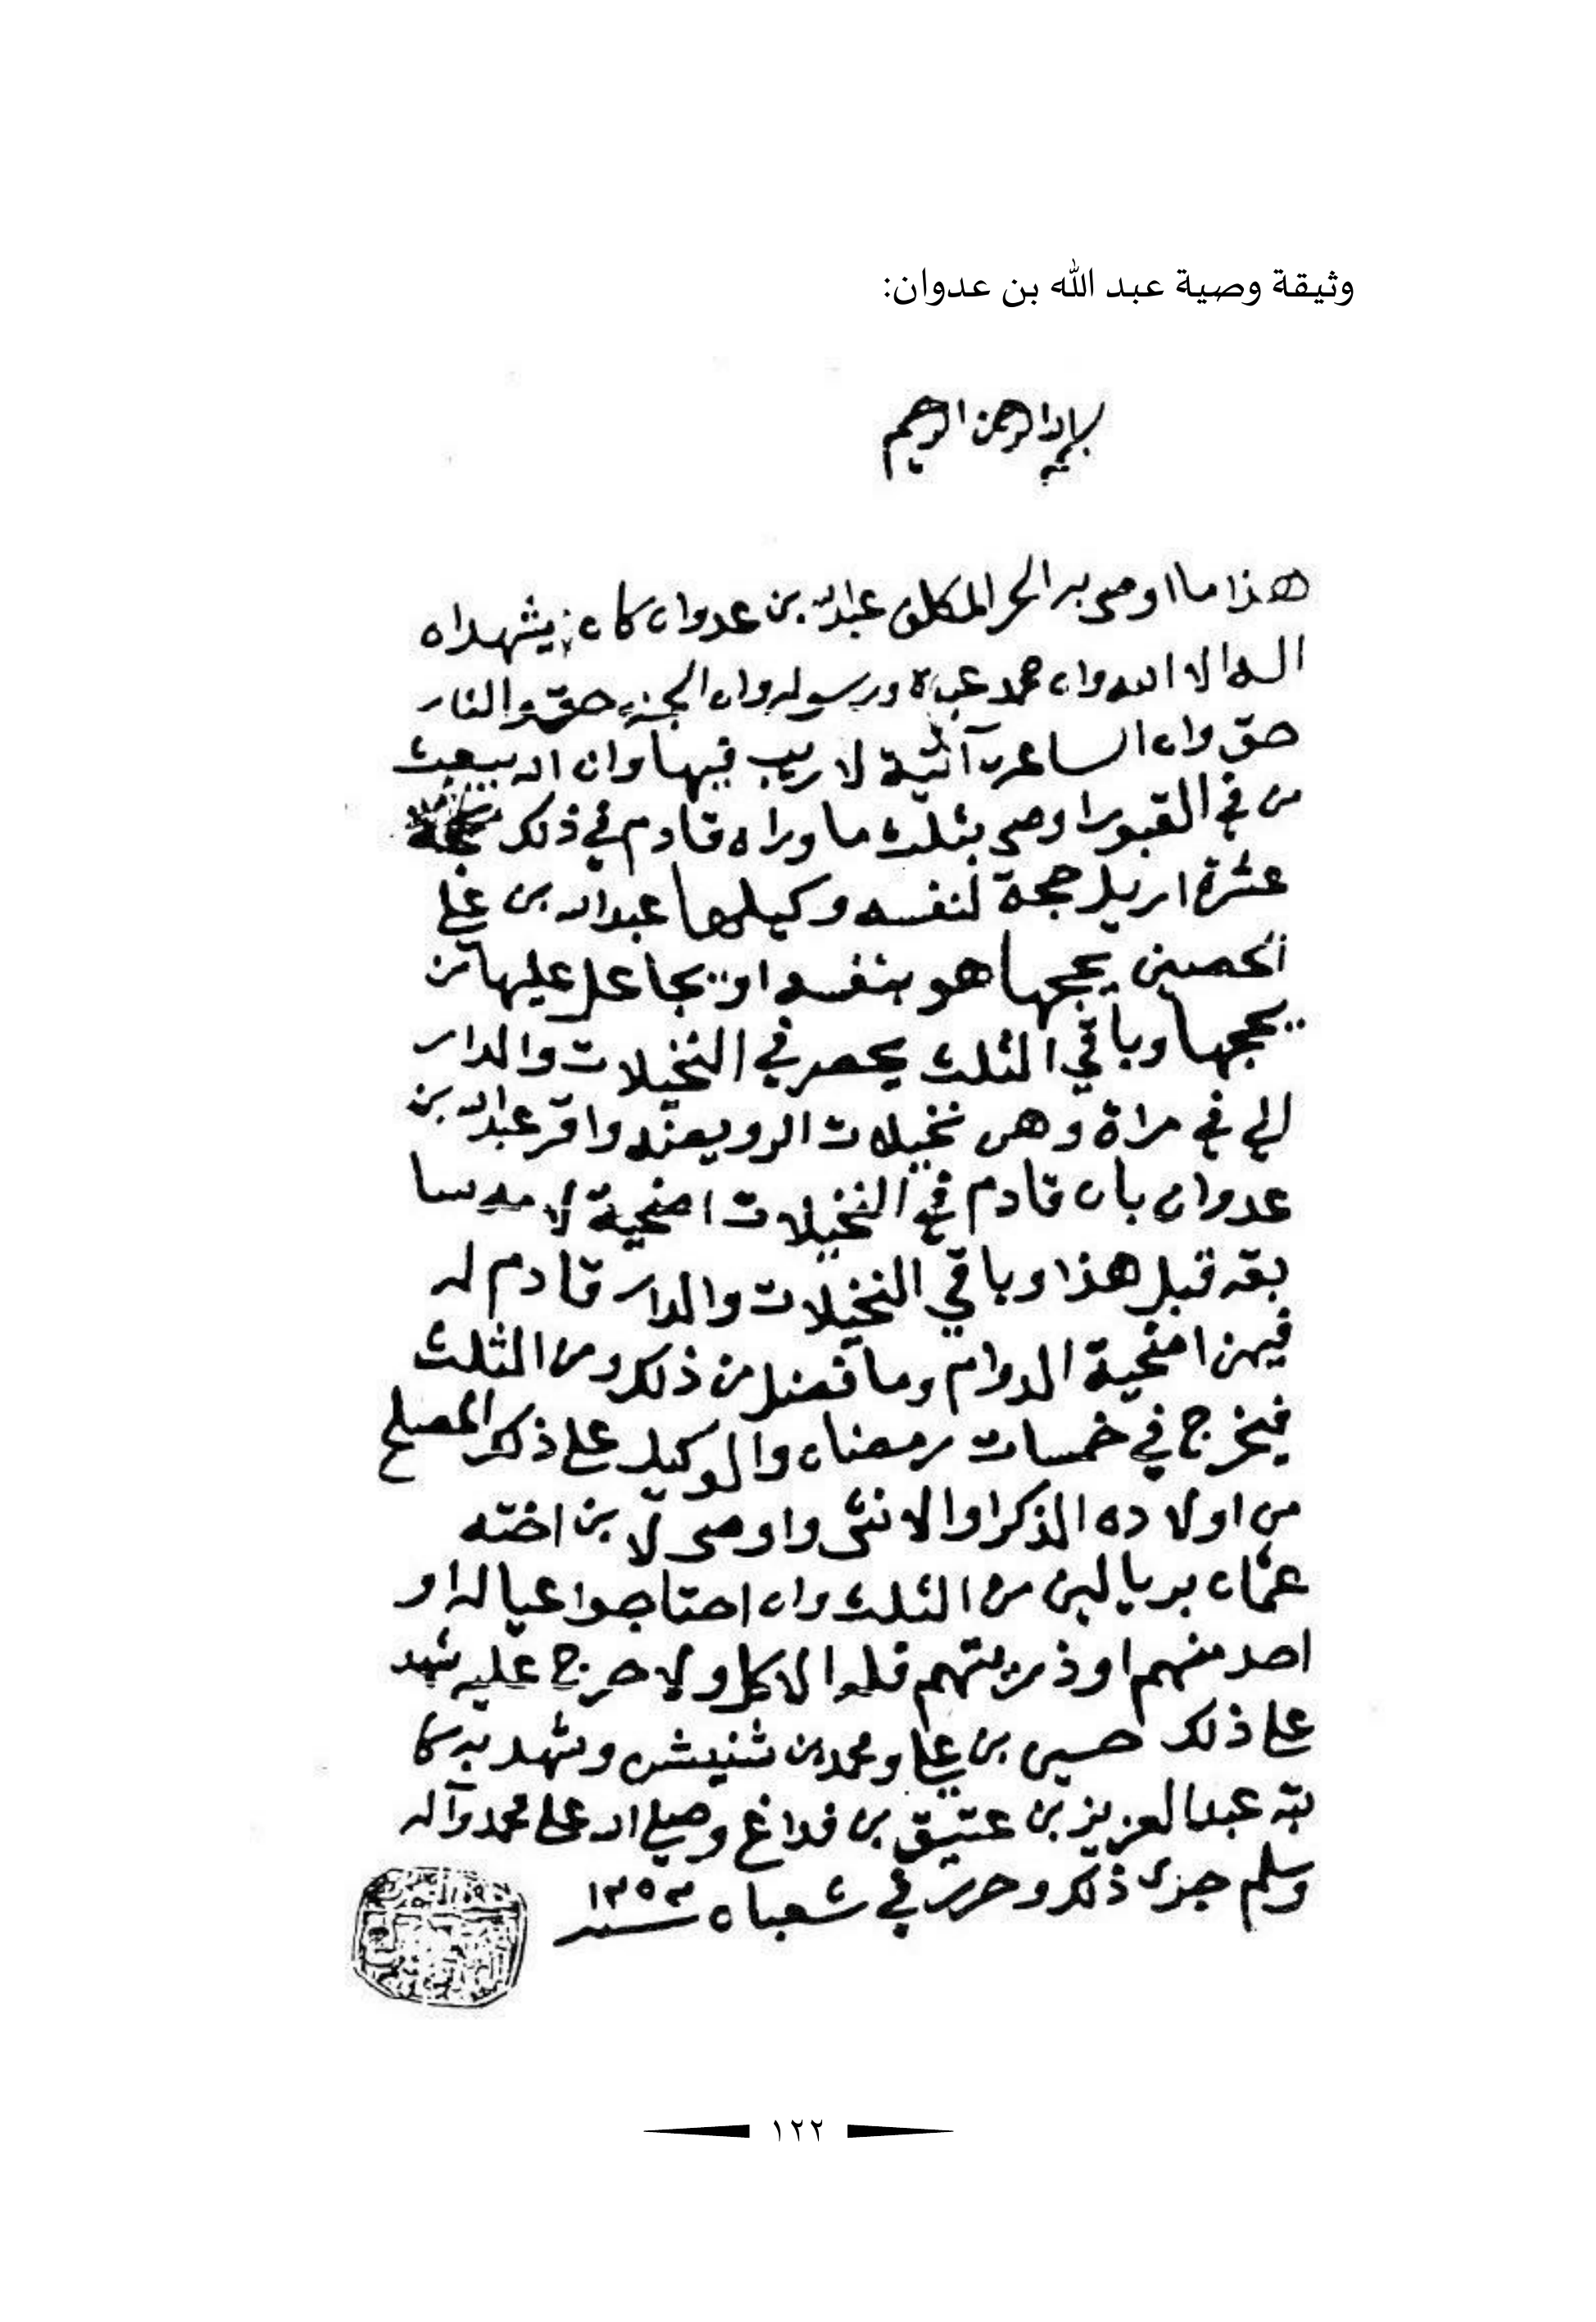 وثيقة وصية عبد الله بن عدوان:
بسم الله الرحمن الرحيم
هذا ما اوصى به الحر المكلف عبدالله بن عدوان كان يشهد ان
الـه الا الله وان محمد عبده ورسوله وان الجنة حق والنار
حق وان الساعة آتية لا ريب فيها وان الله يبعث
من في القبور اوصى بثلث ما وراه قادم في ذلك
عشرة اريل حجة لنفسه وكيلها عبدالله بن علي
الحصيني يحجها هو بنفسه او يجاعل عليها من
يحجها وباقي الثلث يحصر في النخيلات والدار
الي في مراة وهن نخيلات الرويعنه واقر عبدالله بن
عدوان بان قادم في النخيلات اضحية لامه سا
بقه قبل هذا وباقي النخيلات والدار قادم له
فيهن اضحية الدوام وما فضل من ذلك ومن الثلث
فيخرج في خمسات رمضان والوكيل على ذلك المصلح
من اولاده الذكر او الانثى واوصى لابن اخته
عثمان بريالين من الثلث وان احتاجوا عياله او
احد منهم او ذريتهم فله الاكل ولا حرج عليه شهد
على ذلك حسين بن علي ومحمد بن شنيش وشهد به كا
تبه عبدالعزيز بن عتيق بن فداغ وصلى الله على محمد وآله
وسلم جرى ذلك وحرر في شعبان سنة ١٣٥٣
١٢٢